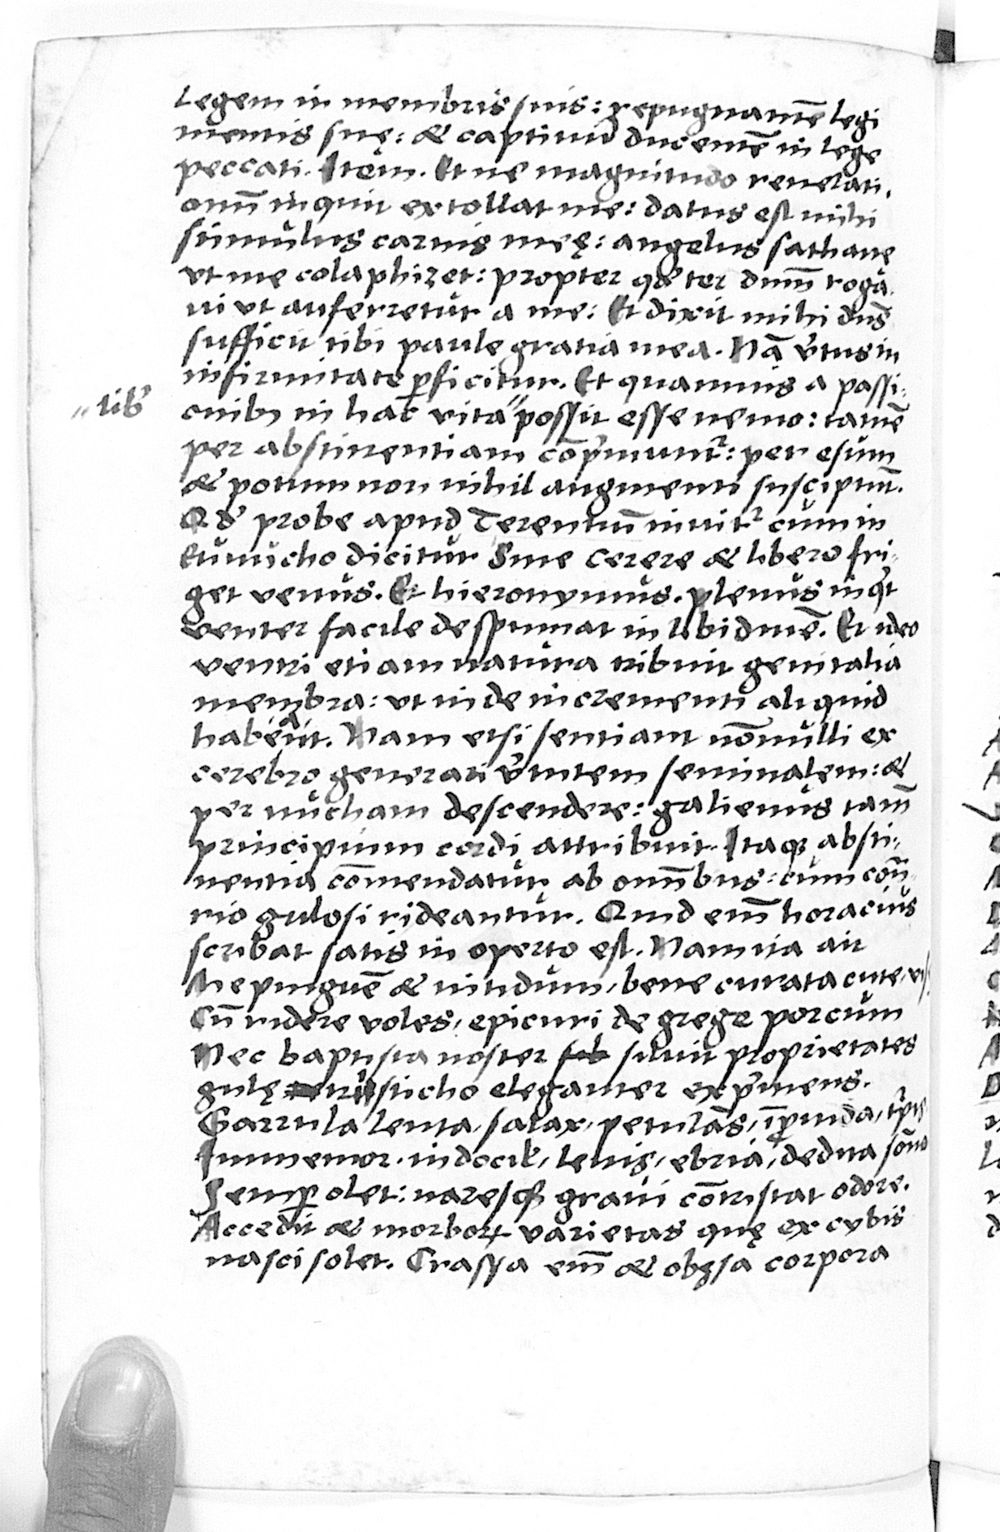 Legem in membris suis: repugnantē legi
mentis suę: & captiuū ducentē in lege
peccati. Item. Et ne magnitudo reuelati,
onū inquit extollat me: datus est mihi
stimulus carnis meę: angelus sathanę
vt me colaphizet: propter qd ter dnm̄ roga,
ui vt auferretur a me: Et dixit mihi dn̄s
sufficit tibi paule gratia mea. Nā v̄tus in
infirmitate ꝑficitur. Et quamuis a passi,
onibꝰ in hac vita " possit esse nemo: tamē
" lib̄
per abstinentiam cōp̄munt᷑: per esum
& potum non nihil augmenti suscipiūt.
Qd probe apud Terentiū innuit᷑ cum in
Eunucho dicitur Sine Cerere & libero fri,
get venus. Et hieronymus. plenus inq̇t
venter facile despumat in libidinē. Et ideo
ventri etiam natura tribuit genitalia
membra: vt inde incrementi aliquid
habeāt. Nam etsi sentiant nōnulli ex
cerebro generari v̄tutem seminalem: &
per nucham descendere: galienus tam̄
principium cordi attribuit. Itaqꝫ absti,
nentia cōmendatur ab omnibus: cum cōn̄,
rio gulosi rideantur. Quid em̄ horacius
scribat satis in operto est. Nam ita ait
Me pinguē & nitidum, bene curata cute, vis,
Cū ridere voles, epicuri de grege porcum
Nec baptista noster siluit proprietates
gulę tristicho eleganter exp̄mens.
Garrula lenta, salax, petulās, īprouida, t̄pis
Immemor, indocil', leuis, ebria, dedita sōno
Semꝑ olet: naresqꝫ graui contristat odore.
Accedit & morboꝝ varietas quę ex cybis
nasci solet. Crassa em̄ & obęsa corpora